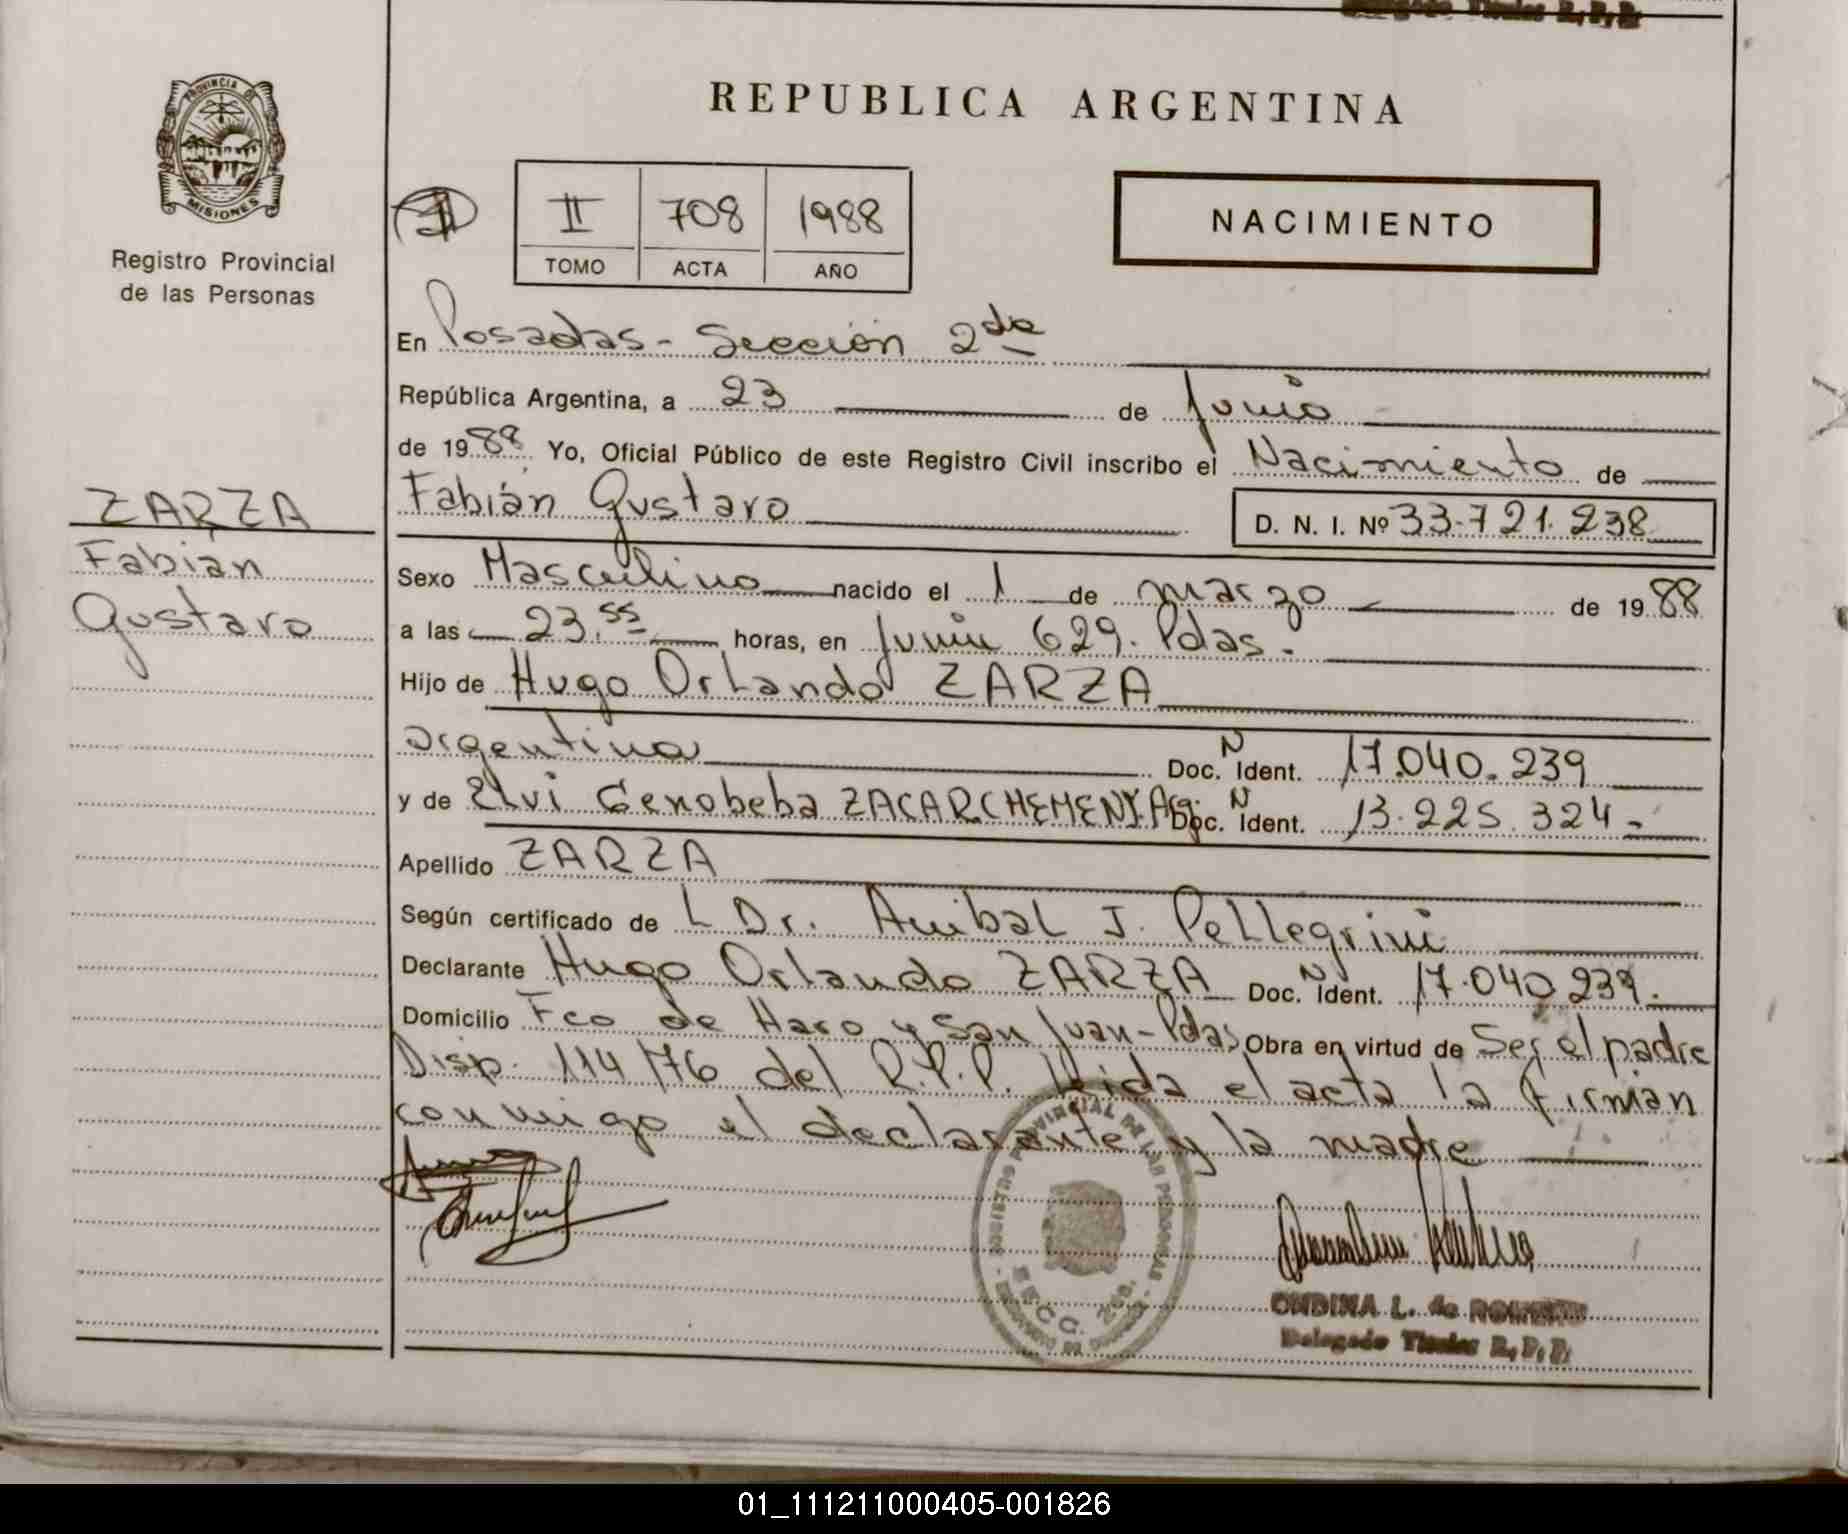 Delegado Titular R.P.P.
PROVINCIA DE
MISIONES
Registro Provincial
de las Personas
REPUBLICA ARGENTINA
II 708 1988
TOMO ACTA AÑO
NACIMIENTO
En Posadas - Sección 2da
República Argentina, a 23 de Junio
de 1988 Yo, Oficial Público de este Registro Civil inscribo el Nacimiento de
Fabián Gustavo D. N. I. Nº 33.721.238
ZARZA
Fabián
Gustavo
Sexo Masculino nacido el 1 de marzo de 1988
a las 23.55 horas, en Junin 629. Pdas.
Hijo de Hugo Orlando ZARZA
argentina Doc. N Ident. 17.040.239
y de Elvi Genobeba ZACARCHEMENY. Arg. Doc. N Ident. 13.225.324-
Apellido ZARZA
Según certificado de L Dr. Anibal J. Pellegrini
Declarante Hugo Orlando ZARZA Doc. N Ident. 17.040.239.
Domicilio Fco de Haro y San Juan - Pdas Obra en virtud de Ser el padre
Disp. 114/76 del R.P.P. leida el acta la firman
conmigo el declarante y la madre
PROVINCIAL DE LAS PERSONAS
SECC. 2da.
ONDINA L. de ROMERO
Delegado Titular R.P.P.
01_111211000405-001826